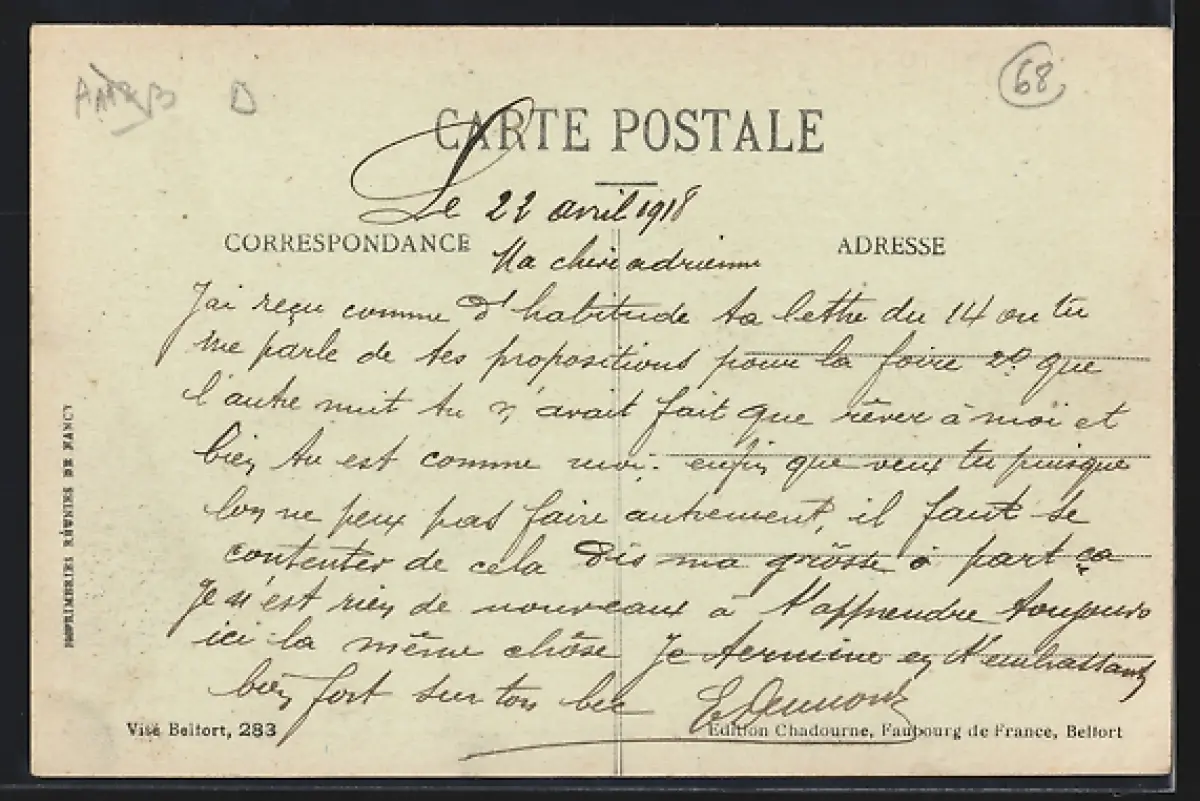 68
CARTE POSTALE
Le 22 avril 1918
CORRESPONDANCE
ADRESSE
Ma chère adrienne
J'ai reçu comme d'habitude ta lettre du 14 ou tu
me parle de tes propositions pour la foire 20 que
l'autre nuit tu n'avait fait que rêver à moi et
bien tu est comme moi. enfin que veux tu puisque
lon ne peux pas faire autrement, il faut se
contenter de cela Dis ma grosse à part ça
Je n'est rien de nouveaux à t'apprendre toujours
ici la même chose Je termine en t'embrassant
bien fort sur ton bec
Visé Belfort, 283
Edition Chadourne, Faubourg de France, Belfort
IMPRIMERIES RÉUNIES DE NANCY